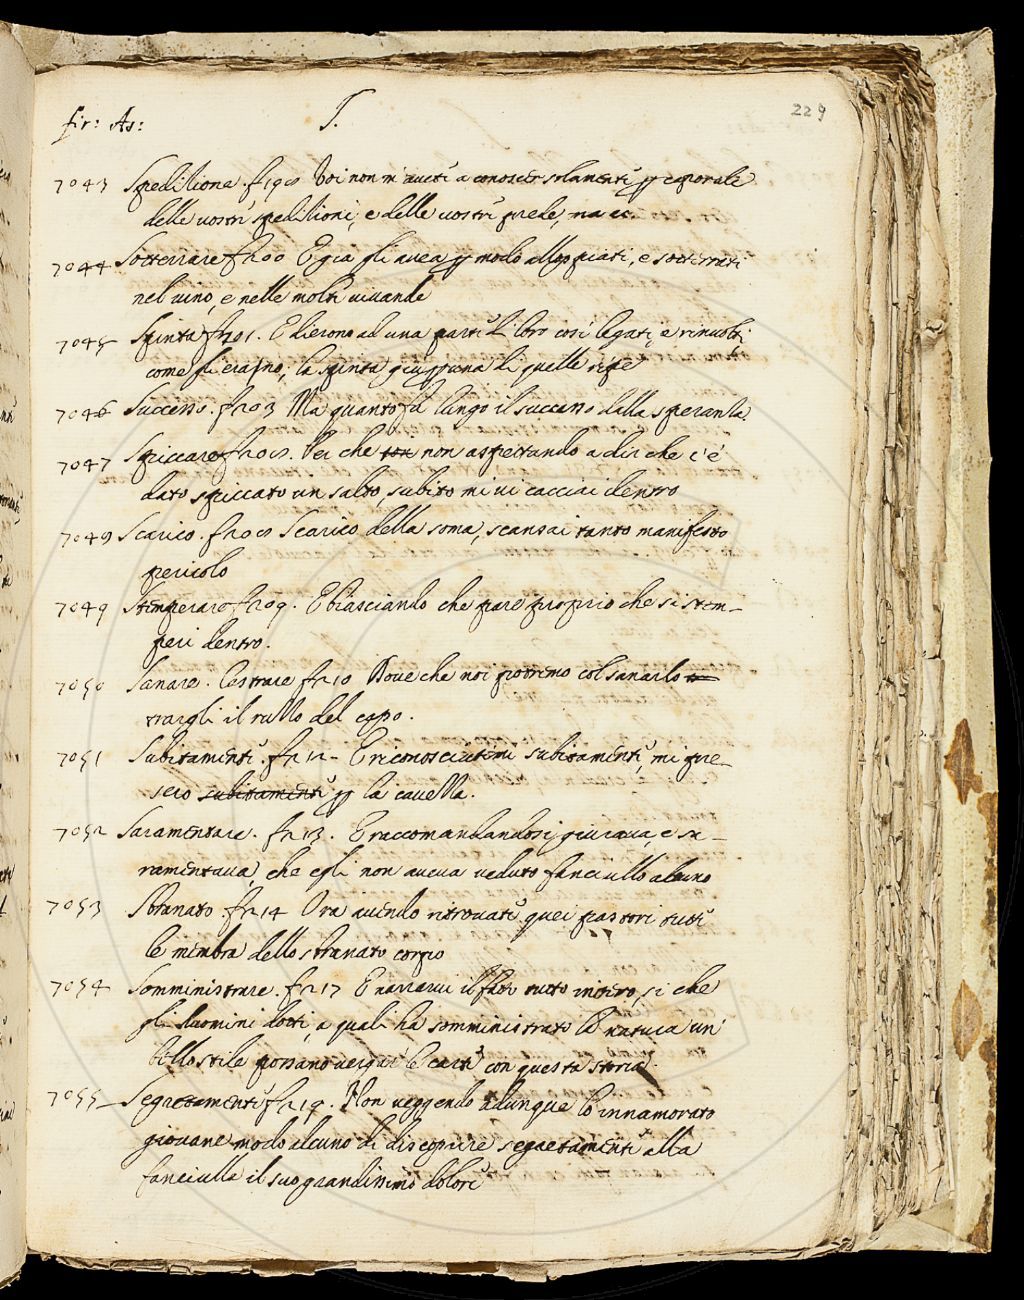 fir: As: S. 229
7043 Spedizione. fir 198 Voi non m'aveti a conoscer solamenti p caporale
delle vostri spedizioni, e delle vostri prede, ma ec.
7044 Sotterrare fir 200 E gia gli avea p modo alloppiati, e sotterrati
nel vino, e nelle molti vivande
7045 Spinta fir 201. E dierono ad una parti di loro cosi legati, e rinvolti
come si erano, la spinta giu p una di quelle ripe
7046 Successo. fir 203 Ma quanto fu lungo il successo dalla speranza
7047 Spiccare fir 205. Per che non aspettando a dir che c'è
dato spiccato un salto, subito mi vi cacciai dentro
7048 Scarico. fir 208 Scarico della soma, scansai tanto manifesto
pericolo
7049 Stemperare fir 209. E biasciando che pare proprio che si stem-
peri dentro.
7050 Sanare. Castrare fir 210 Dove che noi potremo col sanarlo
trargli il ruzzo del capo.
7051 Subitamenti. fir 212 - E riconosciutomi subitamenti, mi pre-
sero subitamenti p la cavezza.
7052 Saramentare. fir 213. E raccomandandosi giurava, e sa-
ramentava, che egli non aveva veduto fanciullo alcuno
7053 Sbranato. fir 214 Ora avendo ritrovati quei pastori tutti
le membra dello sbranato corpo
7054 Somministrare. fir 217 E narrarvi il fatto tutto intero, si che
gli huomini dotti, a quali ha somministrato la natura un
bello stile possano vergar le carti con questa storia.
7055 Segretamenti fir 219. Non veggendo adunque lo innamorato
giovane modo alcuno di discoprire segretamenti alla
fanciulla il suo grandissimo dolori